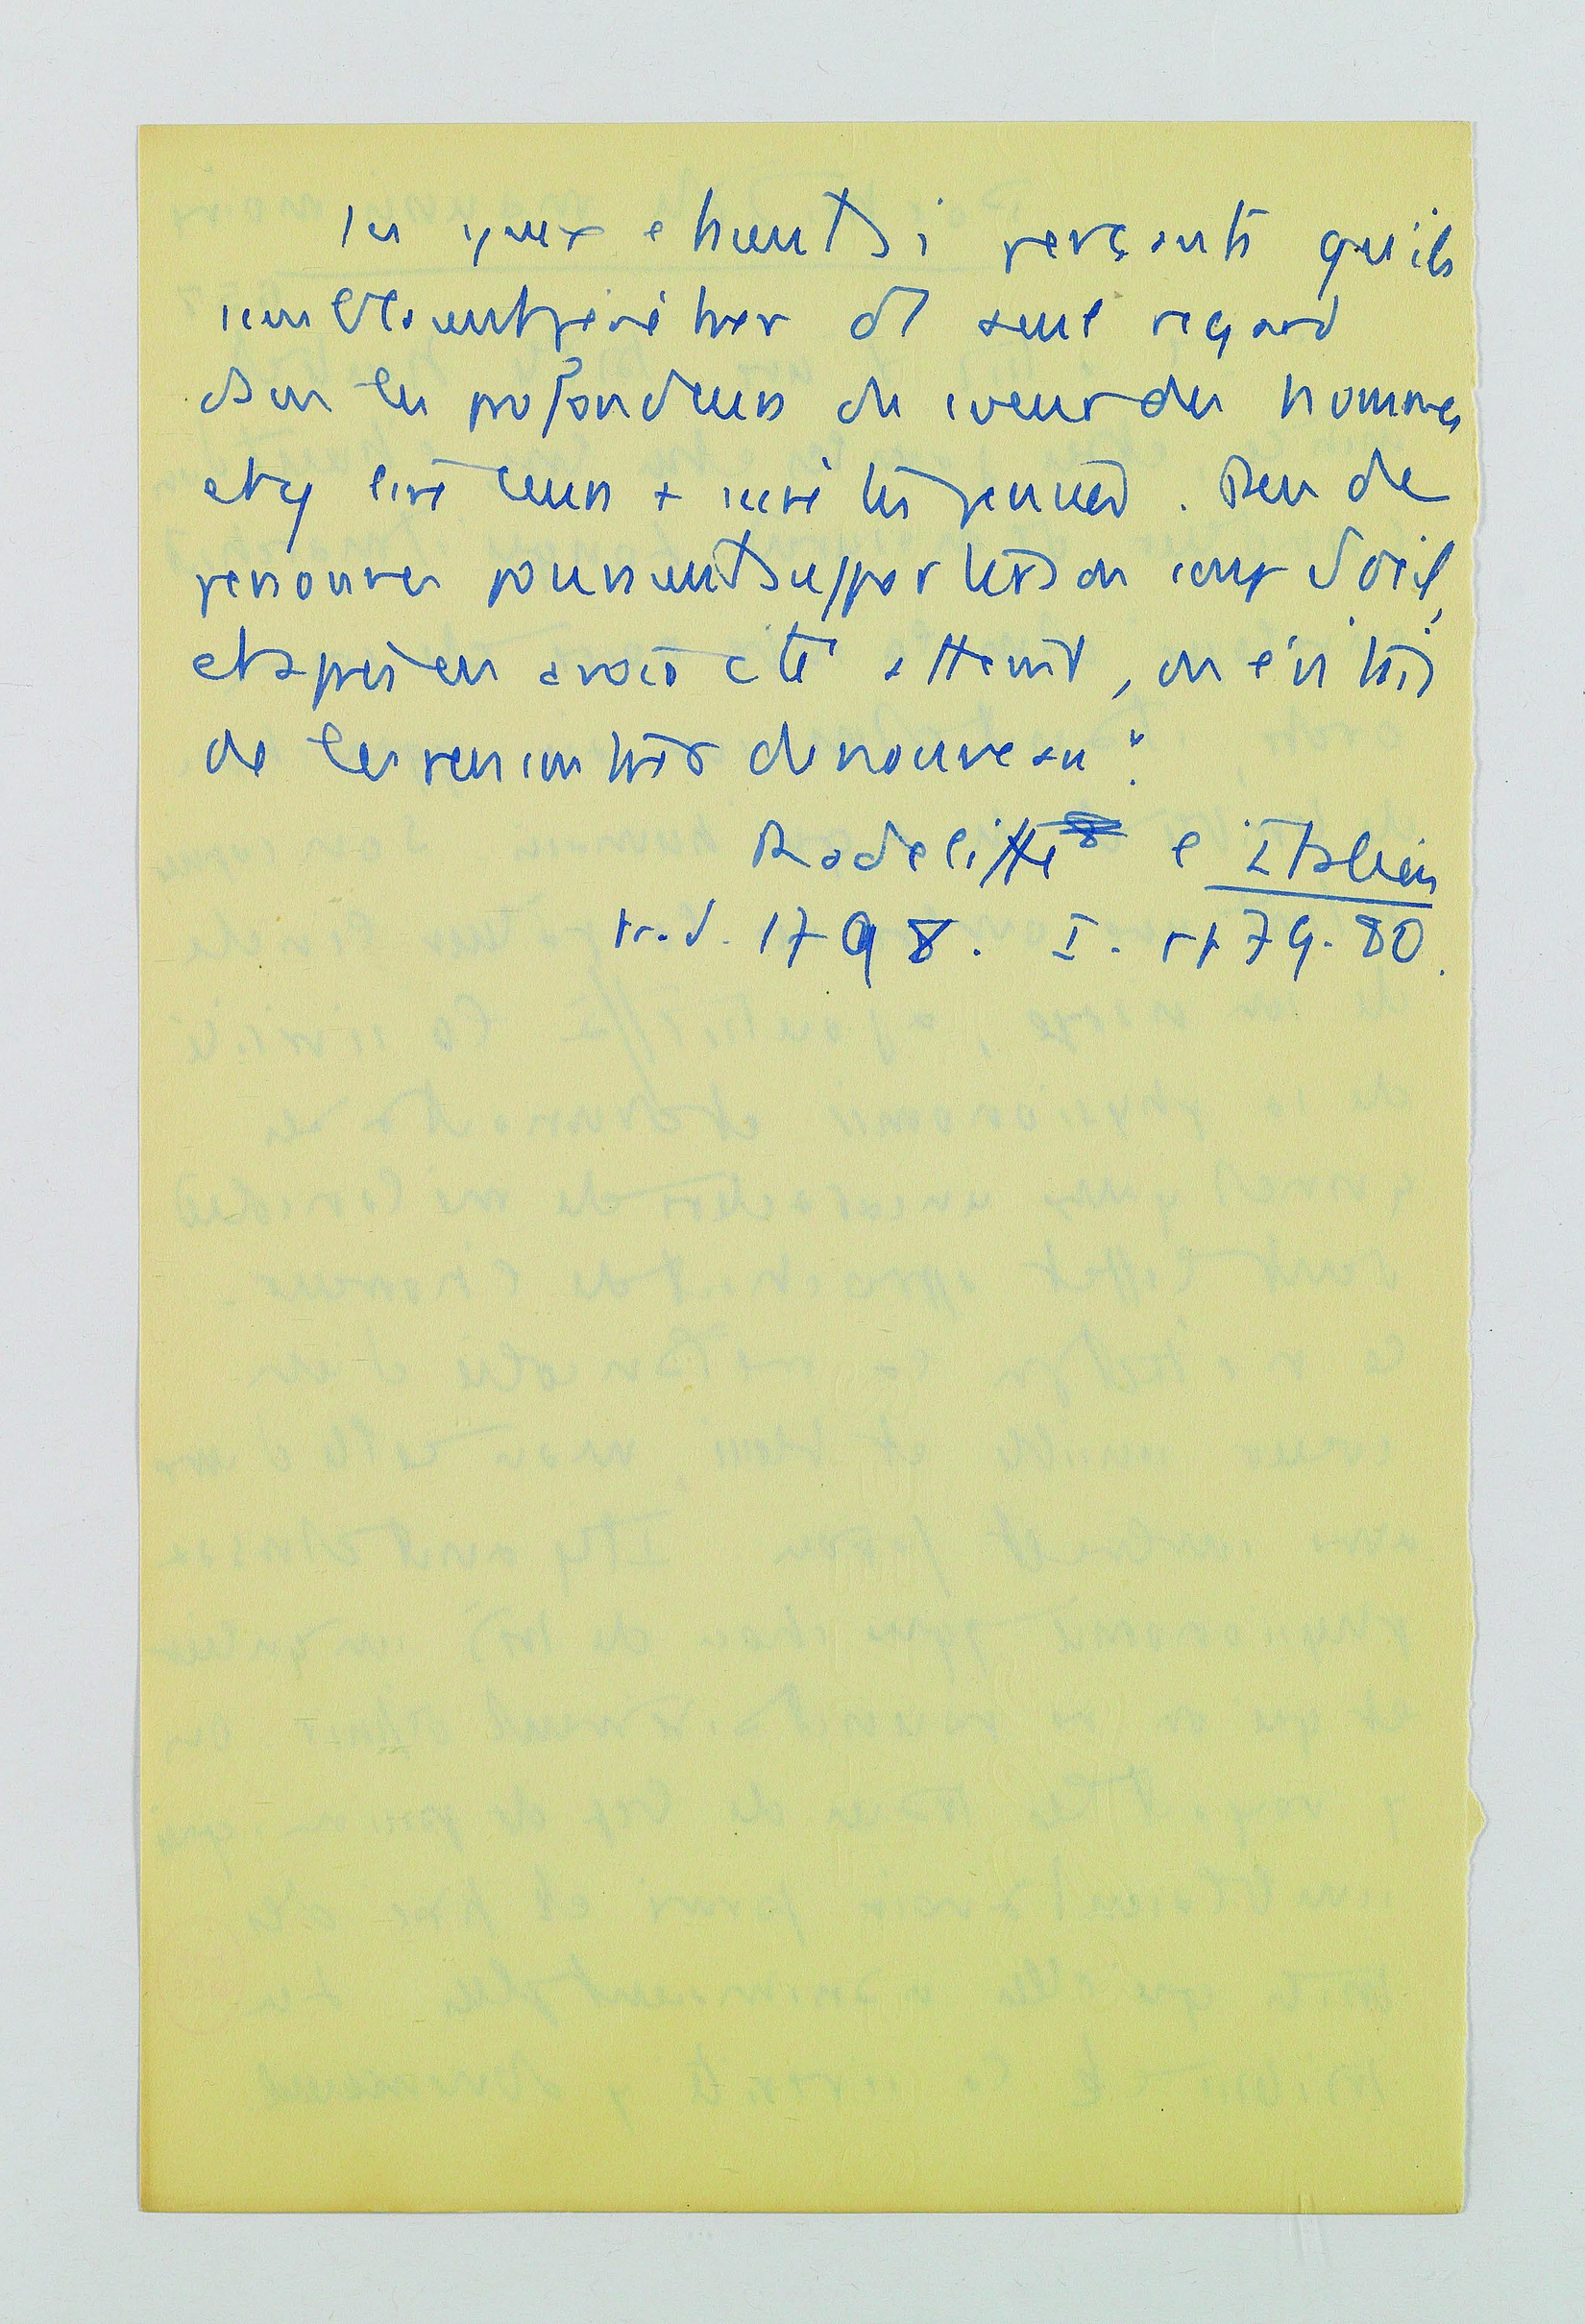 ses yeux etaient si perçants qu'ils
semblaient penetrer d'1 seul regard
dans les profondeurs du coeur des hommes
et y lire leurs + secretes pensées. Peu de
personnes pouvaient supporter son coup d'oeil,
et après en avoir été atteint, on evitait
de les rencontrer de nouveau".
Radcliffe l'Italien
tr. f. 1798. I. pp 79-80.